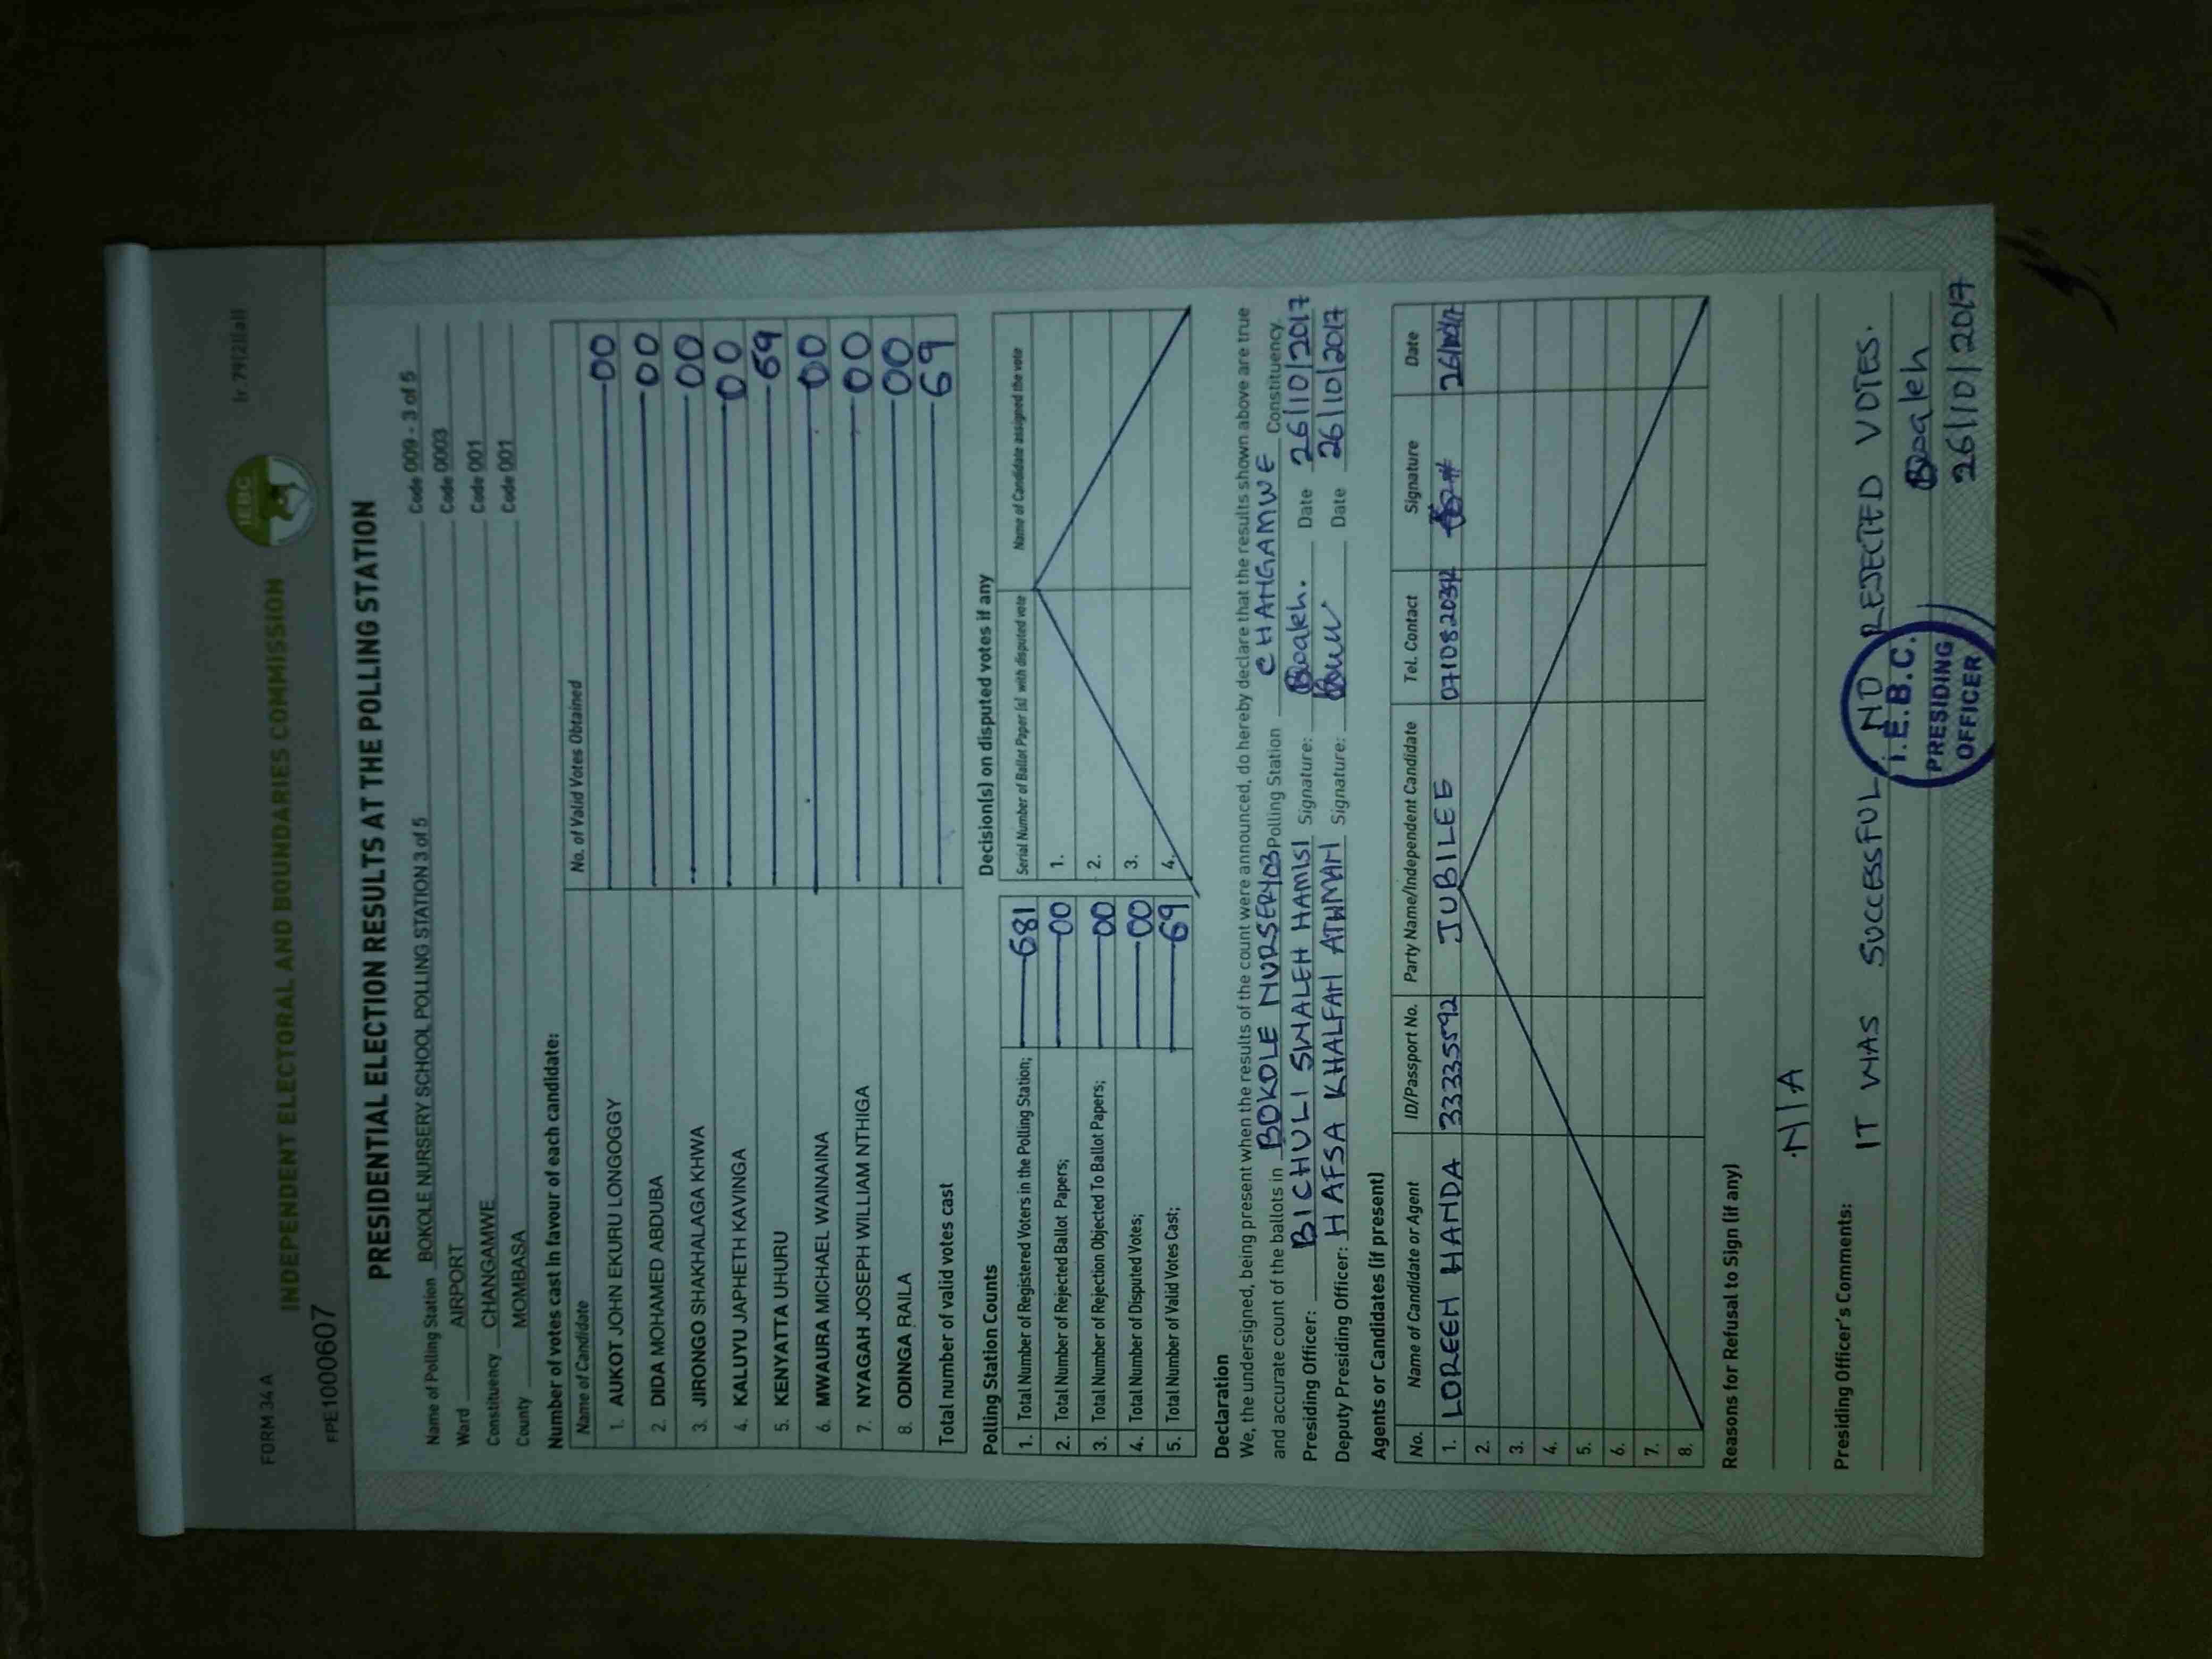 FORM 34 A
(r. 79(2)(a))
IEBC
INDEPENDENT ELECTORAL AND BOUNDARIES COMMISSION
FPE1000607
PRESIDENTIAL ELECTION RESULTS AT THE POLLING STATION
Name of Polling Station BOKOLE NURSERY SCHOOL POLLING STATION 3 of 5 Code 009 - 3 of 5
Ward AIRPORT Code 0003
Constituency CHANGAMWE Code 001
County MOMBASA Code 001
Number of votes cast in favour of each candidate:
Name of Candidate No. of Valid Votes Obtained
1. AUKOT JOHN EKURU LONGOGGY 00
2. DIDA MOHAMED ABDUBA 00
3. JIRONGO SHAKHALAGA KHWA 00
4. KALUYU JAPHETH KAVINGA 00
5. KENYATTA UHURU 69
6. MWAURA MICHAEL WAINAINA 00
7. NYAGAH JOSEPH WILLIAM NTHIGA 00
8. ODINGA RAILA 00
Total number of valid votes cast 69
Polling Station Counts
1. Total Number of Registered Voters in the Polling Station; 681
2. Total Number of Rejected Ballot Papers; 00
3. Total Number of Rejection Objected To Ballot Papers; 00
4. Total Number of Disputed Votes; 00
5. Total Number of Valid Votes Cast; 69
Decision(s) on disputed votes if any
Serial Number of Ballot Paper (s) with disputed vote Name of Candidate assigned the vote
1.
2.
3.
4.
Declaration
We, the undersigned, being present when the results of the count were announced, do hereby declare that the results shown above are true
and accurate count of the ballots in BOKOLE NURSERY03 Polling Station CHANGAMWE Constituency.
Presiding Officer: BICHULI SWALEH HAMISI Signature: Date 26/10/2017
Deputy Presiding Officer: HAFSA KHALFAN ATHMAN Signature: Date 26/10/2017
Agents or Candidates (if present)
No. Name of Candidate or Agent ID/Passport No. Party Name/Independent Candidate Tel. Contact Signature Date
1. LOREEN HANDA 33335592 JUBILEE 0710820392
2.
3.
4.
5.
6.
7.
8.
Reasons for Refusal to Sign (if any)
N/A
Presiding Officer's Comments:
IT WAS SUCCESSFUL, NO REJECTED VOTES.
I.E.B.C.
PRESIDING
OFFICER
26/10/2017